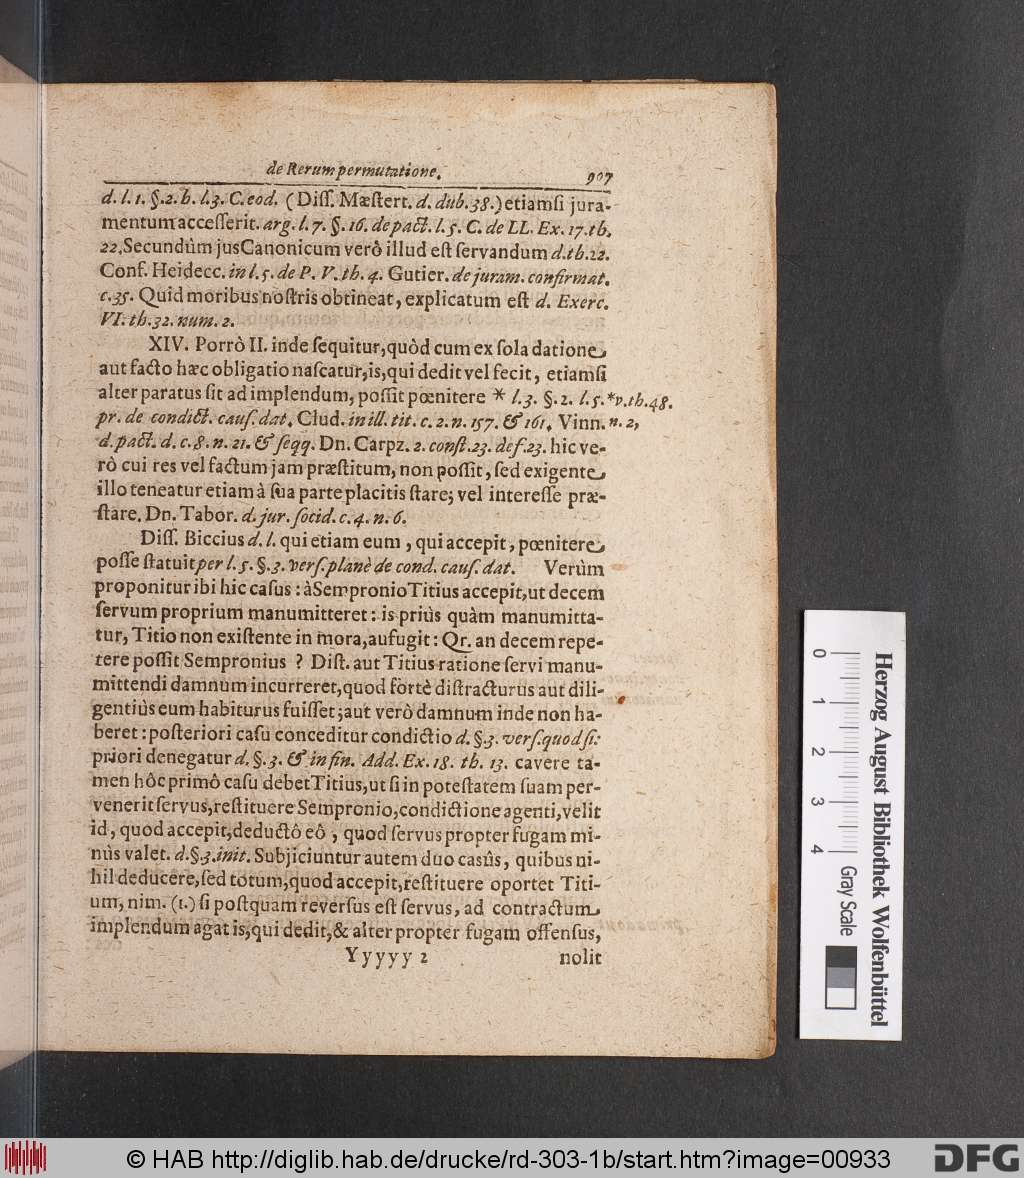 de Rerum permutatione. 907
d. l. 1. §. 2. h. l. 3. C. eod. (Diſſ. Mæſtert. d. dub. 38.) etiamſi jura-
mentum acceſſerit. arg. l. 7. §. 16. de pact. l. 5. C. de LL. Ex. 17. th.
22. Secundùm jus Canonicum verô illud eſt ſervandum d. th. 22.
Conf. Heidecc. in l. 5. de P. V. th. 4. Gutier. de juram. confirmat.
c. 35. Quid moribus noſtris obtineat, explicatum eſt d. Exerc.
VI. th. 32. num. 2.
XIV. Porrò II. inde ſequitur, quòd cum ex ſola datione
aut facto hæc obligatio naſcatur, is, qui dedit vel fecit, etiamſi
alter paratus ſit ad implendum, poſſit pœnitere * l. 3. §. 2. l. 5. * v. th. 48.
pr. de condict. cauſ. dat. Clud. in ill. tit. c. 2. n. 157. & 161. Vinn. n. 2,
d. pact. d. c. 8. n. 21. & ſeqq. Dn. Carpz. 2. conſt. 23. def. 23. hic ve-
rô cui res vel factum jam præſtitum, non poſſit, ſed exigente
illo teneatur etiam à ſua parte placitis ſtare; vel intereſſe præ-
ſtare. Dn. Tabor. d. jur. ſocid. c. 4. n. 6.
Diſſ. Biccius d. l. qui etiam eum, qui accepit, pœnitere
poſſe ſtatuit per l. 5. §. 3. verſ. planè de cond. cauſ. dat. Verùm
proponitur ibi hic caſus: à Sempronio Titius accepit, ut decem
ſervum proprium manumitteret: is priùs quàm manumitta-
tur, Titio non exiſtente in mora, aufugit: Qr. an decem repe-
tere poſſit Sempronius? Diſt. aut Titius ratione ſervi manu-
mittendi damnum incurreret, quod fortè diſtracturus aut dili-
gentiùs eum habiturus fuiſſet; aut verò damnum inde non ha-
beret: poſteriori caſu conceditur condictio d. §. 3. verſ. quod ſi:
priori denegatur d. §. 3. & in fin. Add. Ex. 18. th. 13. cavere ta-
men hôc primô caſu debet Titius, ut ſi in poteſtatem ſuam per-
venerit ſervus, reſtituere Sempronio, condictione agenti, velit
id, quod accepit, deductô eô, quod ſervus propter fugam mi-
nùs valet. d. §. 3. init. Subjiciuntur autem duo caſûs, quibus ni-
hil deducere, ſed totum, quod accepit, reſtituere oportet Titi-
um, nim. (1.) ſi poſtquam reverſus eſt ſervus, ad contractum
implendum agat is, qui dedit, & alter propter fugam offenſus,
Yyyyy 2 nolit
Herzog August Bibliothek Wolfenbüttel
0 1 2 3 4
Gray Scale
© HAB http://diglib.hab.de/drucke/rd-303-1b/start.htm?image=00933
DFG